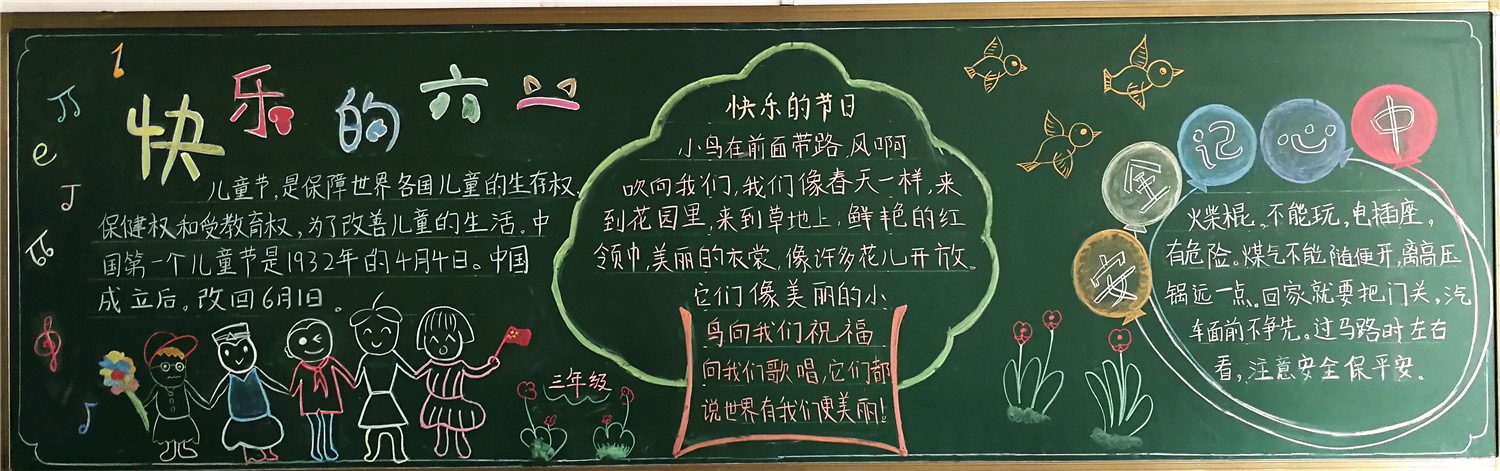 快乐的六一
儿童节,是保障世界各国儿童的生存权、
保健权和受教育权,为了改善儿童的生活。中
国第一个儿童节是1932年的4月4日。中国
成立后。改回6月1日。
三年级
快乐的节日
小鸟在前面带路,风啊
吹向我们,我们像春天一样,来
到花园里,来到草地上,鲜艳的红
领巾,美丽的衣裳,像许多花儿开放。
它们像美丽的小
鸟向我们祝福
向我们歌唱,它们都
说世界有我们便美丽!
安全记心中
火柴棍。不能玩,电插座。
有危险。煤气不能随便开,离高压
锅远一点。回家就要把门关,汽
车面前不争先。过马路时左右
看,注意安全保平安。